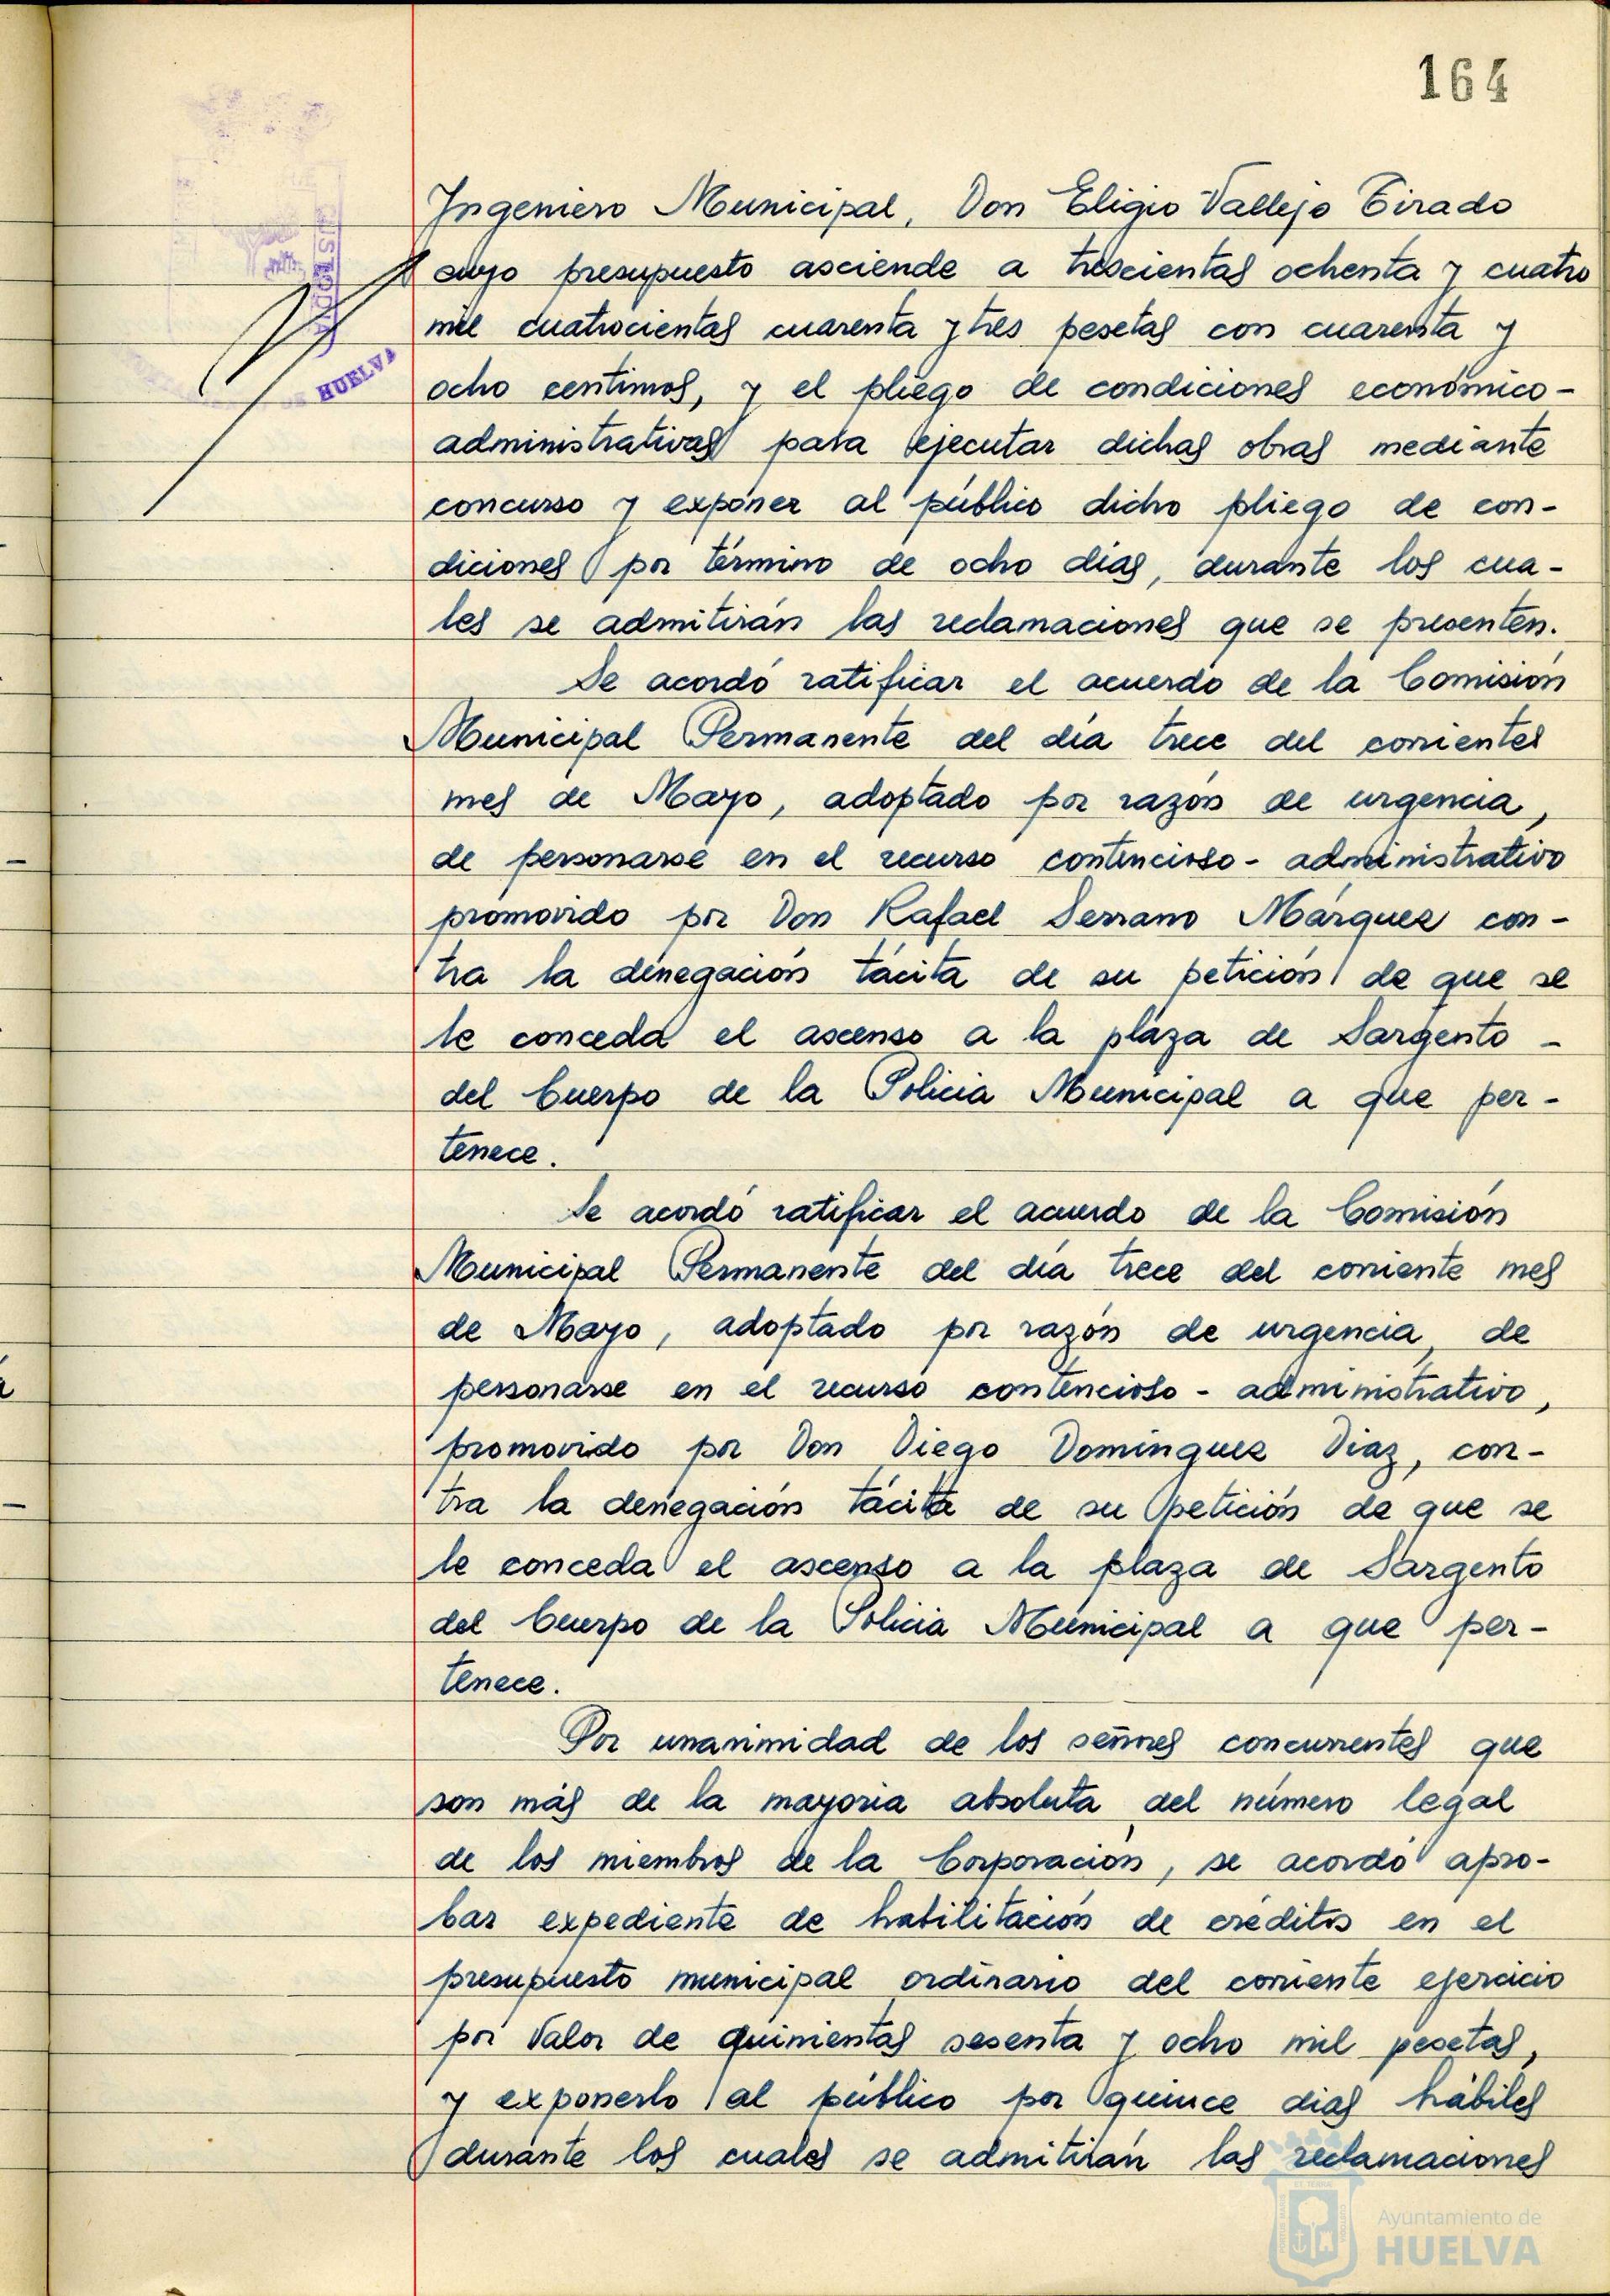 164
Ingeniero Municipal, Don Eligio Vallejo Tirado
cuyo presupuesto asciende a trescientas ochenta y cuatro
mil cuatrocientas cuarenta y tres pesetas con cuarenta y
ocho centimos, y el pliego de condiciones económico-
administrativas para ejecutar dichas obras mediante
concurso y exponer al público dicho pliego de con-
diciones por término de ocho días, durante los cua-
les se admitirán las reclamaciones que se presenten.
Se acordó ratificar el acuerdo de la Comisión
Municipal Permanente del día trece del corrientes
mes de Mayo, adoptado por razón de urgencia,
de personarse en el recurso contencioso-administrativo
promovido por Don Rafael Serrano Márquez con-
tra la denegación tácita de su petición de que se
le conceda el ascenso a la plaza de Sargento -
del Cuerpo de la Policia Municipal a que per-
tenece.
Se acordó ratificar el acuerdo de la Comisión
Municipal Permanente del día trece del corriente mes
de Mayo, adoptado por razón de urgencia, de
personarse en el recurso contencioso-administrativo,
promovido por Don Diego Dominguez Diaz, con-
tra la denegación tácita de su petición de que se
le conceda el ascenso a la plaza de Sargento
del Cuerpo de la Policia Municipal a que per-
tenece.
Por unanimidad de los señores concurrentes que
son más de la mayoria absoluta del número legal
de los miembros de la Corporación, se acordó apro-
bar expediente de habilitación de créditos en el
presupuesto municipal ordinario del corriente ejercicio
por valor de quinientas sesenta y ocho mil pesetas,
y exponerlo al público por quince dias hábiles
durante los cuales se admitirán las reclamaciones
DE HUELVA
Ayuntamiento de
HUELVA